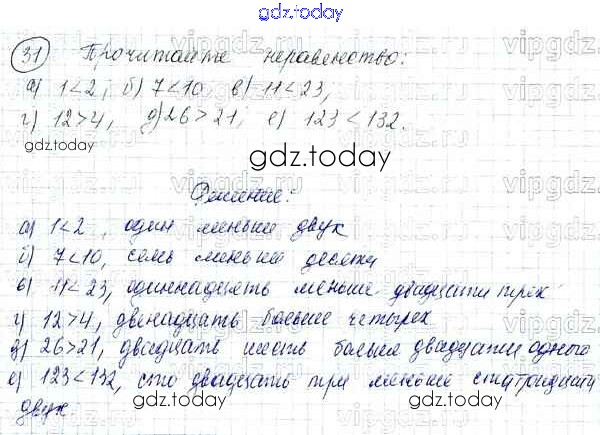 gdz.today
31 Прочитайте неравенство:
а) 1<2; б) 7<10, в) 11<23,
г) 12>4, д) 26>21, е) 123<132.
gdz.today
gdz.today
Решение:
а) 1<2, один меньше двух
б) 7<10, семь меньше десяти
в) 11<23, одиннадцать меньше двадцати трёх
г) 12>4, двенадцать больше четырех
д) 26>21, двадцать шесть больше двадцати одного
е) 123<132, сто двадцать три меньше ста тридцати
двух.
gdz.today
gdz.today